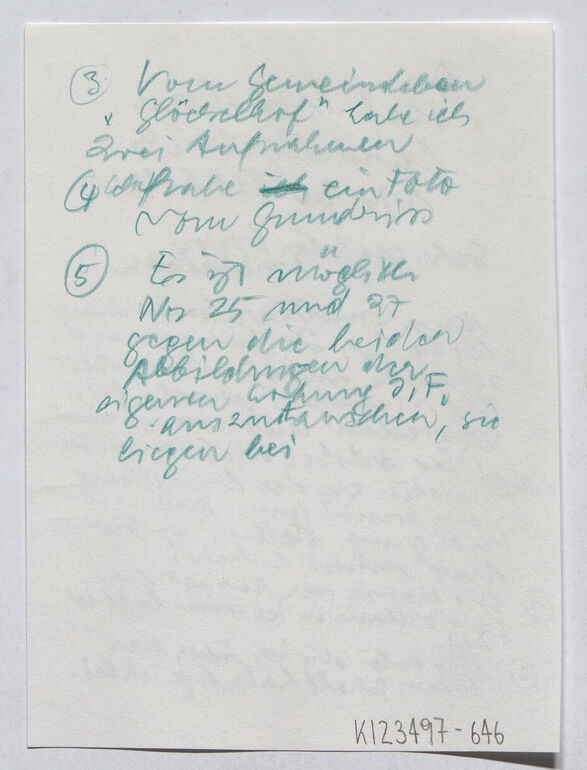 ③ Vom Gemeindebau
„Glöckelhof" habe ich
zwei Aufnahmen
④ habe ein Foto
vom Grundriss
⑤ Es ist möglich
No 25 und 27
gegen die beiden
Abbildungen der
eigenen Wohnung J. F.
auszutauschen, sie
liegen bei
K123497-646